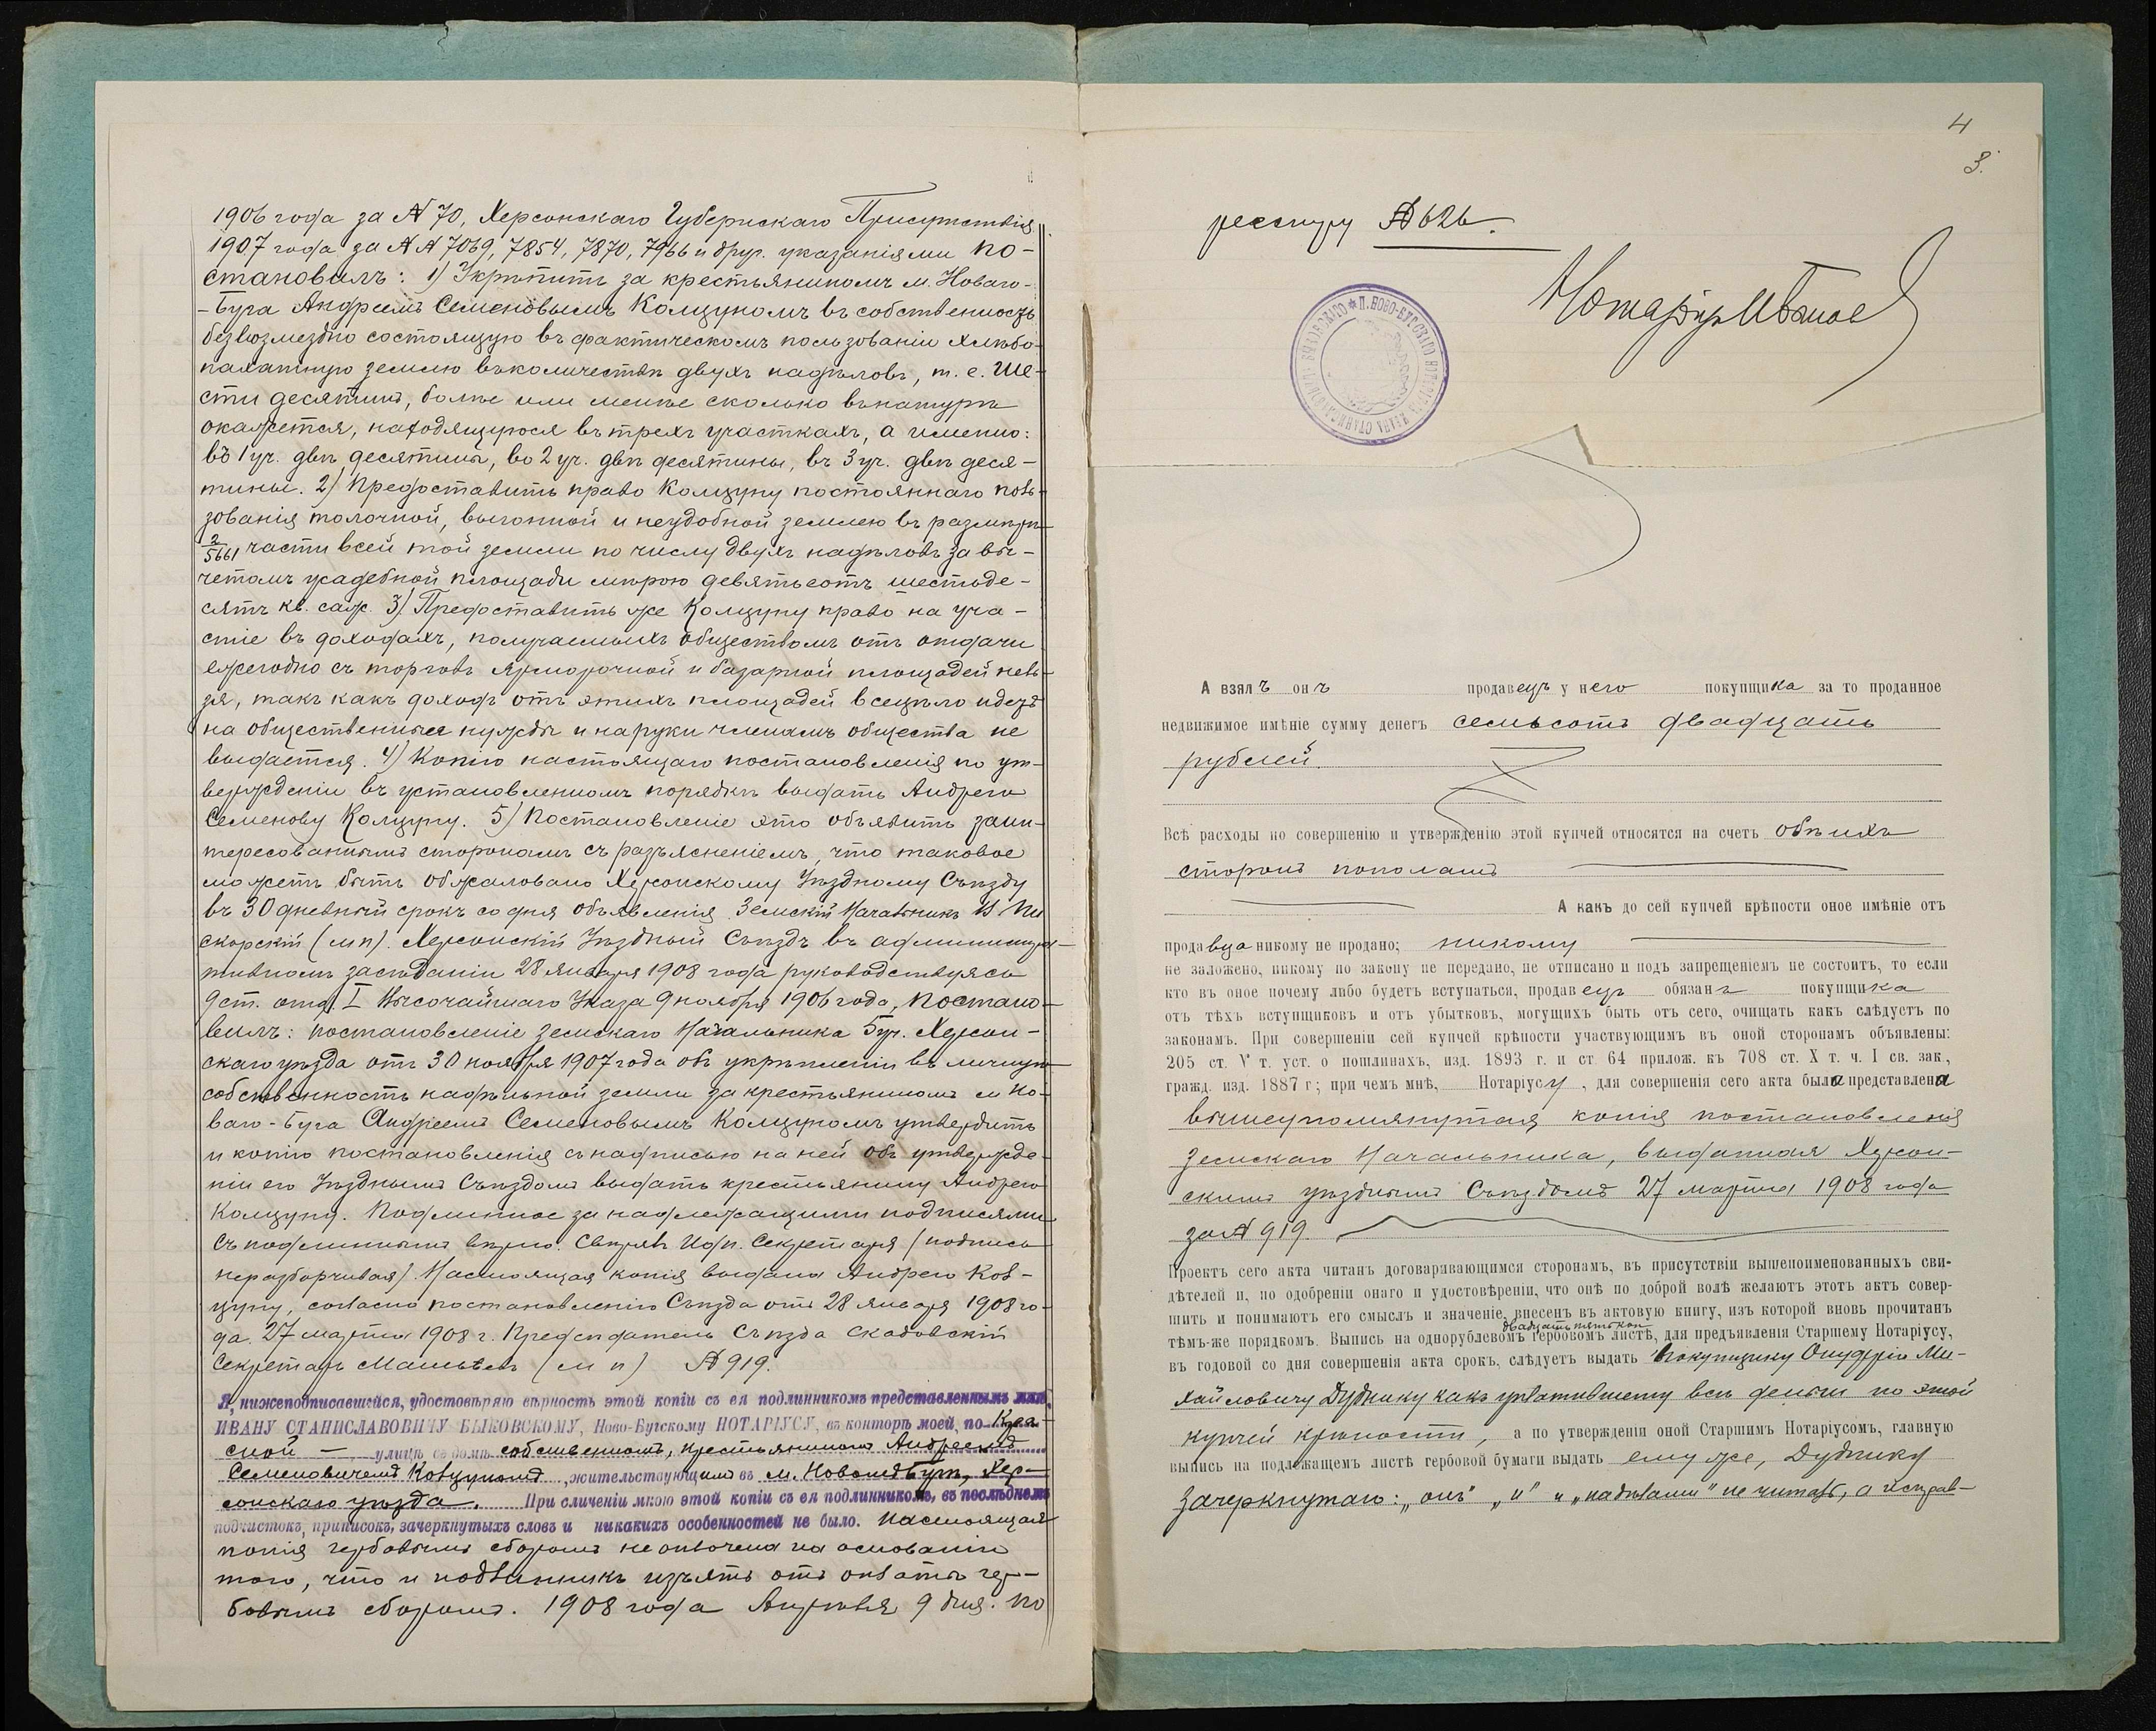 1906 года за № 70, Херсонскаго Губернскаго Присутствія
1907 года за №№ 7069, 7854, 7870, 7966 и друг. указаніями по-
становилъ: 1) Укрѣпить за крестьяниномъ м. Новаго-
-Буга Андреемъ Семеновымъ Колцуномъ въ собственность
безвозмездно состоящую въ фактическомъ пользованіи хлѣбо-
пахатную землю въ количествѣ двухъ надѣловъ, т. е. ше-
сти десятинъ, болѣе или менѣе сколько въ натурѣ
окажется, находящуюся въ трехъ участкахъ, а именно:
въ 1 уч. двѣ десятины, во 2 уч. двѣ десятины, въ 3 уч. двѣ деся-
тины. 2) Предоставить право Колцуну постояннаго поль-
зованія толочной, выгонной и неудобной землею въ размѣрѣ
2/5661 части всей той земли по числу двухъ надѣловъ за вы-
четомъ усадебной площади мѣрою девятьсотъ шестьде-
сятъ кв. саж. 3) Предоставить же Колцуну право на уча-
стіе въ доходахъ, получаемыхъ обществомъ отъ отдачи
ежегодно съ торговъ ярморочной и базарной площадей нель-
зя, такъ какъ доходъ отъ этихъ площадей всецѣло идетъ
на общественныя нужды и на руки членамъ общества не
выдается. 4) Копію настоящаго постановленія по ут-
вержденіи въ установленномъ порядкѣ выдать Андрею
Семенову Колцуну. 5) Постановленіе это объявить заин-
тересованнымъ сторонамъ съ разъясненіемъ, что таковое
можетъ быть обжаловано Херсонскому Уѣздному Съѣзду
въ 30 дневный срокъ со дня объявленія. Земскій Начальникъ Пи
скорскій (м п). Херсонскій Уѣздный Съѣздъ въ администра-
тивномъ засѣданіи 28 января 1908 года руководствуясь
9 ст. отд. I Высочайшаго Указа 9 ноября 1906 года, постано-
вилъ: постановленіе Земскаго Начальника 5 уч. Херсон-
скаго уѣзда отъ 30 ноября 1907 года объ укрѣпленіи въ личную
собственность надѣльной земли за крестьяниномъ м Но-
ваго-Буга Андреемъ Семеновымъ Колцуномъ утвердить
и копію постановленія съ надписью на ней объ утвержде-
ніи его Уѣзднымъ Съѣздомъ выдать крестьянину Андрею
Колцуну. Подлинное за надлежащими подписями
Съ подлиннымъ вѣрно. Свѣрялъ И об п. Секретаря (подпись
неразборчивая). Настоящая копія выдана Андрею Кол-
цуну, согласно постановленію Съѣзда отъ 28 января 1908 го-
да. 27 марта 1908 г. Предсѣдатель Съѣзда Скадовскій
Секретарь (м п) № 919.
Я, нижеподписавшійся, удостовѣряю вѣрность этой копіи съ ея подлинникомъ представленнымъ мнѣ,
ИВАНУ СТАНИСЛАВОВИЧУ БЫКОВСКОМУ, Ново-Бугскому НОТАРІУСУ, въ конторѣ моей, по
ской — улицѣ въ домѣ собственномъ, крестьяниномъ Андреемъ
Семеновичемъ Колцуномъ, жительствующимъ въ м. Новомъ Бугѣ, Хер-
сонскаго уѣзда. При сличеніи мною этой копіи съ ея подлинникомъ, въ послѣднемъ
подчистокъ, приписокъ, зачеркнутыхъ словъ и никакихъ особенностей не было. Настоящая
копія гербовымъ сборомъ не оплочена на основаніи
того, что и подлинникъ изъятъ отъ оплаты гер-
бовымъ сборомъ. 1908 года Апрѣля 9 дня. По
4
3.
реестру № 626.
Нотаріусъ
А взялъ онъ продавецъ у него покупщика за то проданное
недвижимое имѣніе сумму денегъ семьсотъ двадцать
рублей.
Всѣ расходы по совершенію и утвержденію этой купчей относятся на счетъ обѣихъ
сторонъ пополамъ
А какъ до сей купчей крѣпости оное имѣніе отъ
продавца никому не продано; никому
не заложено, никому по закону не передано, не отписано и подъ запрещеніемъ не состоитъ, то если
кто въ оное почему либо будетъ вступаться, продавецъ обязанъ покупщика
отъ тѣхъ вступщиковъ и отъ убытковъ, могущихъ быть отъ сего, очищать какъ слѣдуетъ по
законамъ. При совершеніи сей купчей крѣпости участвующимъ въ оной сторонамъ объявлены:
205 ст. V т. уст. о пошлинахъ, изд. 1893 г. и ст 64 прилож. къ 708 ст. X т. ч. I св. зак.,
гражд. изд. 1887 г; при чемъ мнѣ, Нотаріусу, для совершенія сего акта была представлена
вышеупомянутая копія постановленія
Земскаго Начальника, выданная Херсон-
скимъ уѣзднымъ Съѣздомъ 27 марта 1908 года
за № 919.
Проектъ сего акта читанъ договаривающимся сторонамъ, въ присутствіи вышепоименованныхъ сви-
дѣтелей и, по одобреніи онаго и удостовѣреніи, что онѣ по доброй волѣ желаютъ этотъ актъ совер-
шить и понимаютъ его смыслъ и значеніе, внесенъ въ актовую книгу, изъ которой вновь прочитанъ
двадцать пять коп
тѣмъ-же порядкомъ. Выпись на однорублевомъ гербовомъ листѣ, для предъявленія Старшему Нотаріусу,
въ годовой со дня совершенія акта срокъ, слѣдуетъ выдать покупщику Онуфрію Ми-
хайловичу Дуднику какъ уплатившему всѣ деньги по этой
купчей крѣпости, а по утвержденіи оной Старшимъ Нотаріусомъ, главную
выпись на подлежащемъ листѣ гербовой бумаги выдать ему же, Дуднику
Зачеркнутаго: „онъ" „и" и „надѣлами" не читать, а исправ-